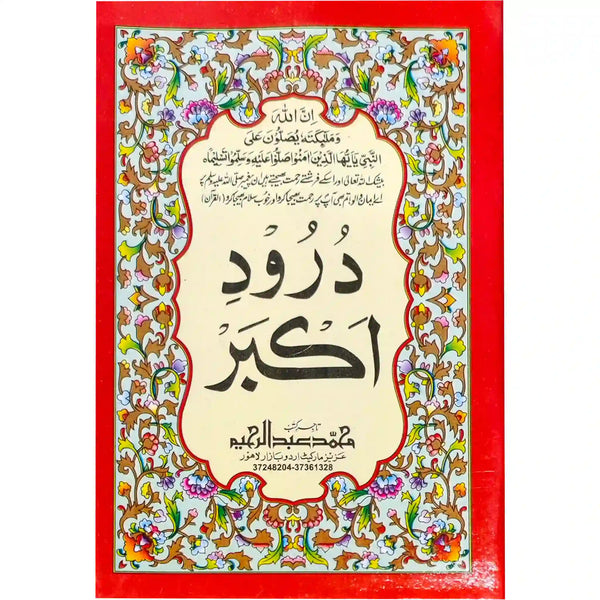 اِنَّ اللّٰهَ
وَ مَلٰٓئِكَتَهٗ يُصَلُّوْنَ عَلَى
النَّبِيِّ يٰٓاَيُّهَا الَّذِيْنَ اٰمَنُوْا صَلُّوْا عَلَيْهِ وَسَلِّمُوْا تَسْلِيْمًا ه
بیشک اللہ تعالیٰ اور اسکے فرشتے رحمت بھیجتے ہیں ان پیغمبر صلی اللہ علیہ وسلم پر
اے ایمان والو تم بھی آپ پر رحمت بھیجا کرو اور خوب سلام بھیجا کرو (القرآن)
دُرُودِ
اَكْبَرْ
تاجر کتب
محمّد عبد الرحیم
عزیز مارکیٹ اردو بازار لاہور
37248204-37361328